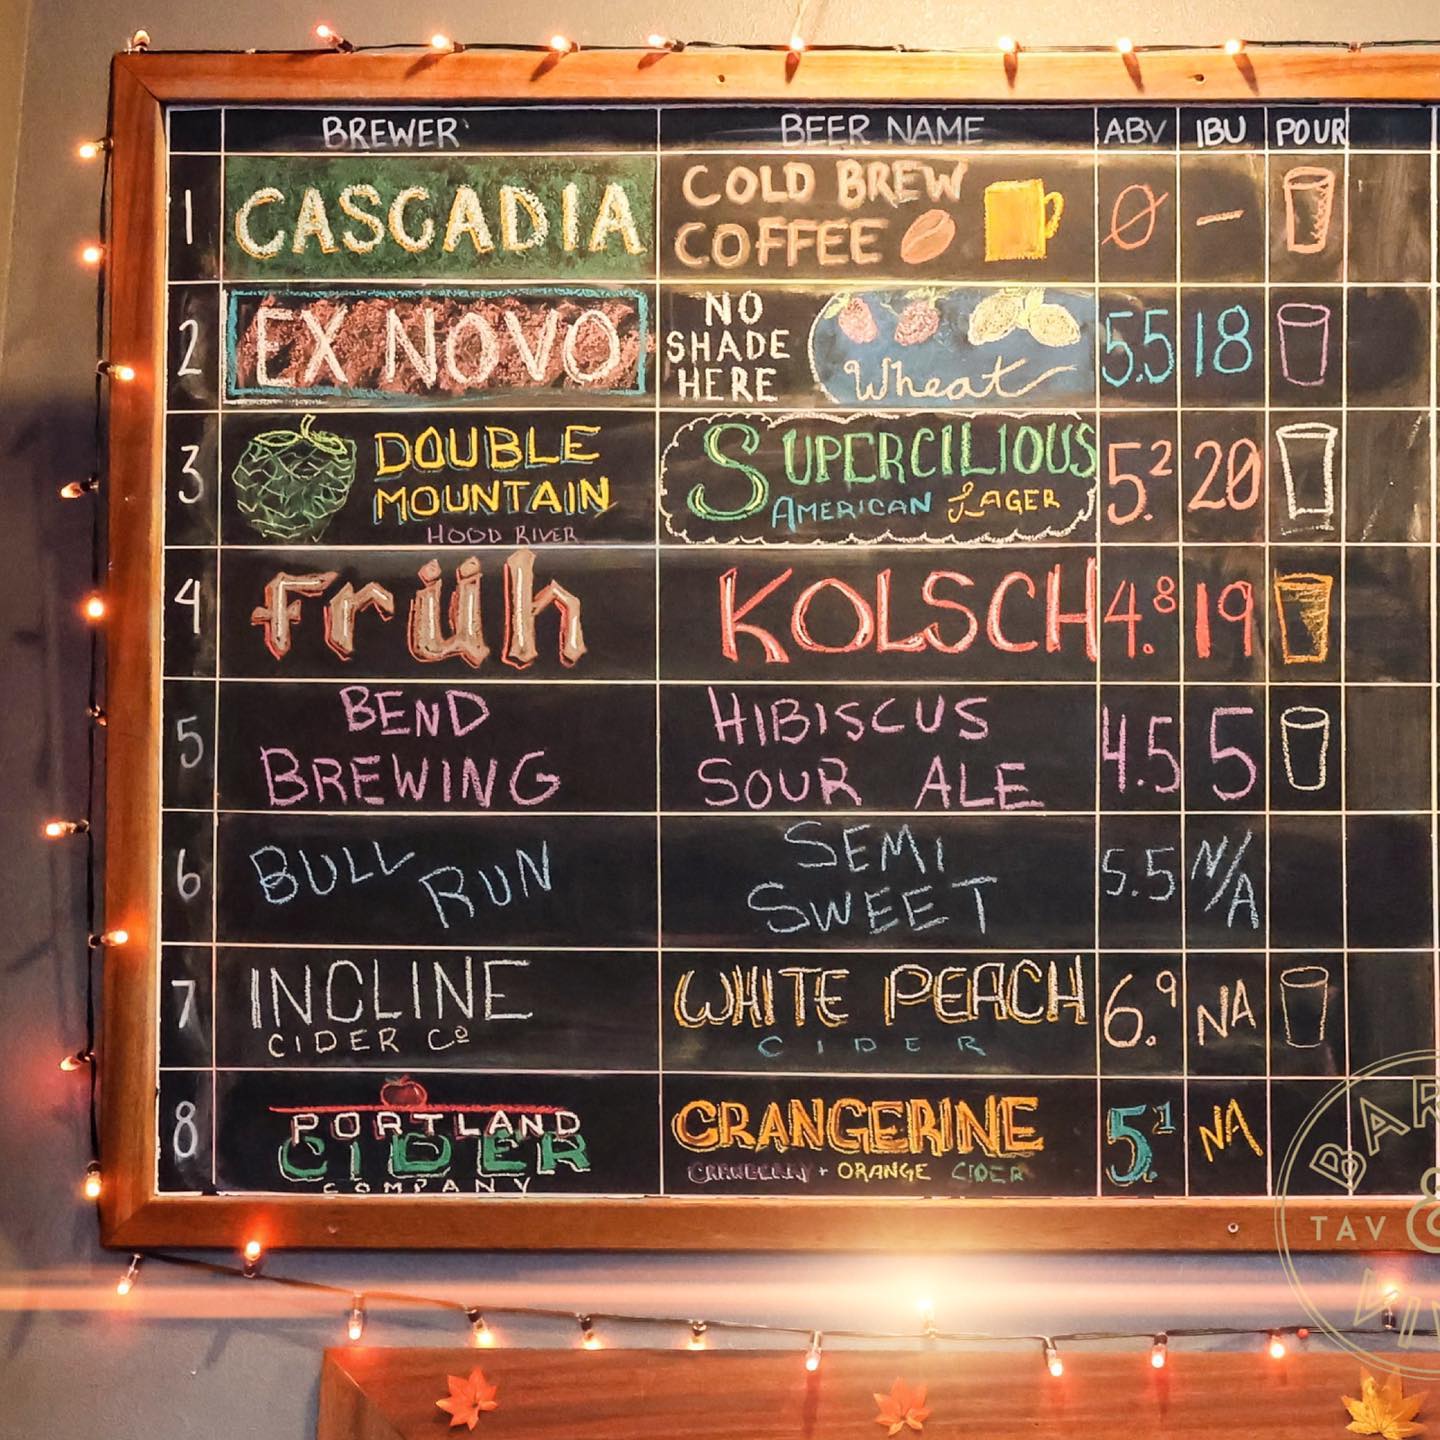 BREWER BEER NAME ABV IBU POUR
1 CASCADIA COLD BREW COFFEE Ø —
2 EX NOVO NO SHADE HERE Wheat 5.5 18
3 DOUBLE MOUNTAIN HOOD RIVER SUPERCILIOUS AMERICAN LAGER 5.2 20
4 früh KOLSCH 4.8 19
5 BEND BREWING HIBISCUS SOUR ALE 4.5 5
6 BULL RUN SEMI SWEET 5.5 N/A
7 INCLINE CIDER Cº WHITE PEACH CIDER 6.9 NA
8 PORTLAND CIDER COMPANY CRANGERINE + ORANGE CIDER 5.1 NA
BAR
TAV &